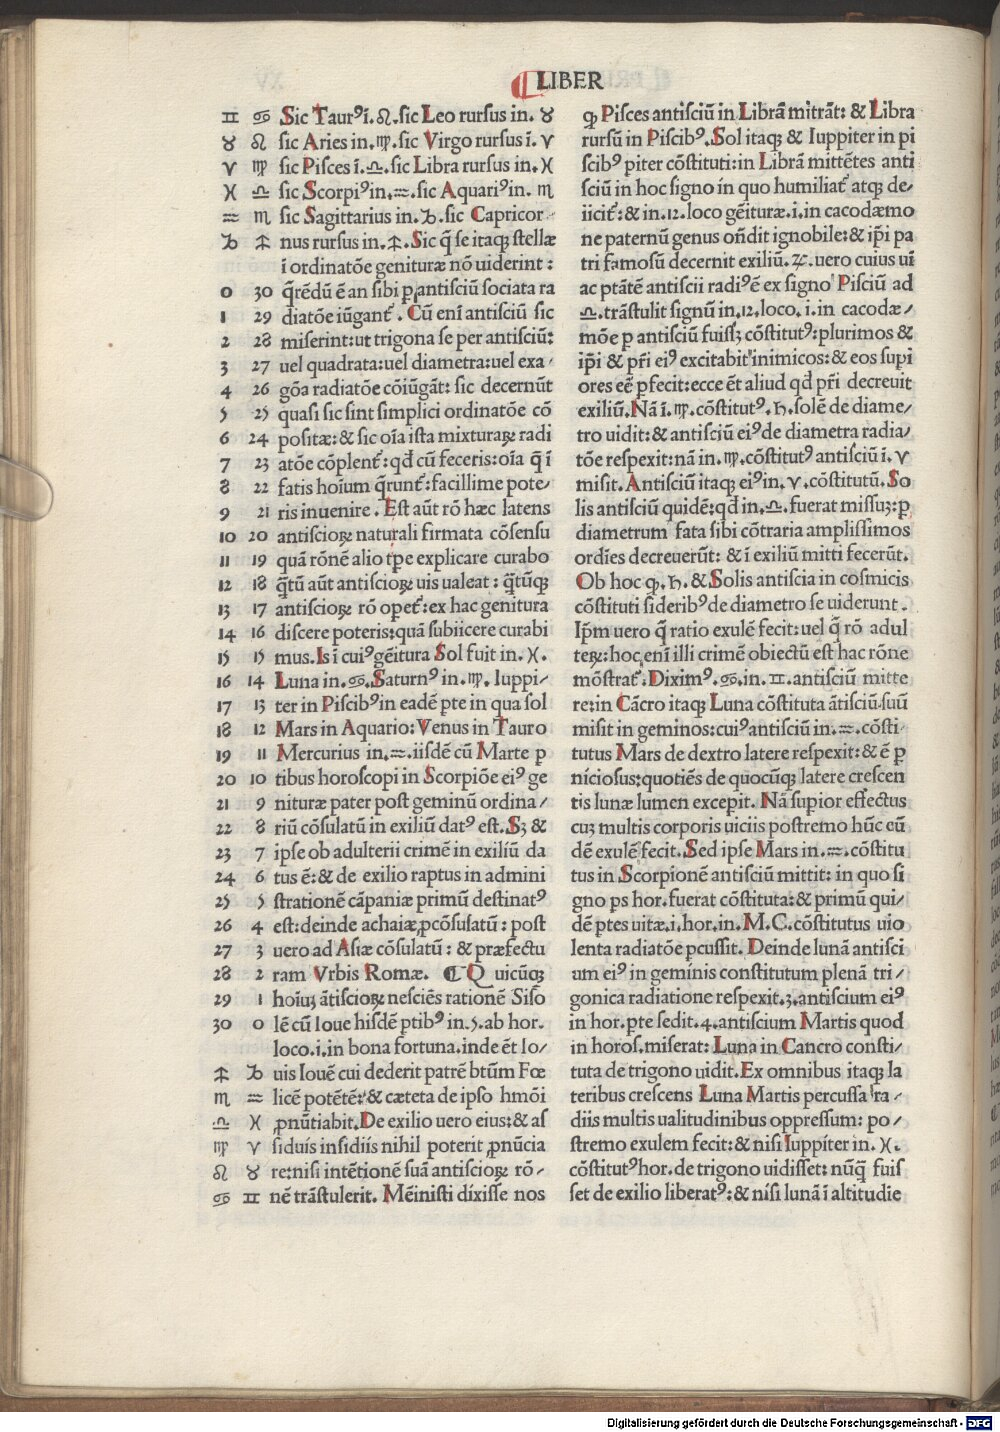 LIBER
♊ ♋ Sic Taurꝰ ī.♌.sic Leo rursus in.♉
♉ ♌ sic Aries in.♍.sic Virgo rursus ī.♈
♈ ♍ sic Pisces ī.♎.sic Libra rursus in.♓
♓ ♎ sic Scorpiꝰ in.♒.sic Aquariꝰ in.♏
♒ ♏ sic Sagittarius in.♑.sic Capricor
♑ ♐ nus rursus in.♐.Sic q̄ se itaq; stellæ
ī ordinatōe genituræ nō uiderint:
0 30 q̄rēdū ē an sibi ꝑ antisciū sociata ra
1 29 diatōe iūgant᷑. Cū enī antisciū sic
2 28 miserint: ut trigona se per antisciū:
3 27 uel quadrata: uel diametra: uel exa-
4 26 gōa radiatōe cōiūgāt: sic decernūt
5 25 quasi sic sint simplici ordinatōe cō
6 24 positæ: & sic oīa ista mixturaꝝ radi
7 23 atōe cōplent᷑: qd̄ cū feceris: oīa q̄ ī
8 22 fatis hoīum q̄runt᷑: facillime pote-
9 21 ris inuenire. Est aūt rō hæc latens
10 20 antiscioꝝ naturali firmata cōsensu
11 19 quā rōnē alio tꝑe explicare curabo
12 18 q̄tū aūt antiscioꝝ uis ualeat: q̄tūq;
13 17 antiscioꝝ rō opet᷑: ex hac genitura
14 16 discere poteris: quā subiicere curabi
15 15 mus. Is ī cuiꝰ gēitura Sol fuit in.♓.
16 14 Luna in.♋.Saturnꝰ in.♍. Iuppi-
17 13 ter in Piscibꝰ in eadē pte in qua sol
18 12 Mars in Aquario: Venus in Tauro
19 11 Mercurius in.♒.iisdē cū Marte p
20 10 tibus horoscopi in Scorpiōe eiꝰ ge
21 9 nituræ pater post geminū ordina-
22 8 riū cōsulatū in exiliū datꝰ est. Sꝫ &
23 7 ipse ob adulterii crimē in exiliū da
24 6 tus ē: & de exilio raptus in admini
25 5 strationē cāpaniæ primū destinatꝰ
26 4 est: deinde achaiæ ꝓcōsulatū: post
27 3 uero ad Asiæ cōsulatū: & præfectu
28 2 ram Vrbis Romæ. ¶ Q uicūq;
29 1 hoīuꝫ ātiscioꝝ nesciēs rationē Siso
30 0 lē cū Ioue hisdē ptibꝰ in.5.ab hor.
loco.i.in bona fortuna.inde ēt Io-
♐ ♑ uis Iouē cui dederit patrē btūm Fœ
♏ ♒ licē potētē: & cæteta de ipso hmōi
♎ ♓ ꝓnūtiabit. De exilio uero eius: & as
♍ ♈ siduis insidiis nihil poterit ꝓnūcia
♌ ♉ re: nisi intētionē suā antiscioꝝ rō-
♋ ♊ nē trāstulerit. Mēinisti dixisse nos
ꝙ Pisces antisciū in Librā mitrāt: & Libra
rursū in Piscibꝰ. Sol itaq; & Iuppiter in pi
scibꝰ piter cōstituti: in Librā mittētes anti
sciū in hoc signo in quo humiliat᷑ atq; de-
iicit᷑: & in.12.loco gēituræ.i.in cacodæmo
ne paternū genus oñdit ignobile: & ip̄i pa
tri famosū decernit exiliū.♃.uero cuius ui
ac ptātē antiscii radiꝰ ē ex signo Pisciū ad
♎.trāstulit signū in.12.loco.i.in cacodæ-
mōe p antisciū fuissꝫ cōstitutꝰ: plurimos &
ip̄i & p̄ri eiꝰ excitabit inimicos: & eos supi
ores eē pfecit: ecce ēt aliud qd̄ p̄ri decreuit
exiliū. Nā ī.♍.cōstitutꝰ.♄.solē de diame-
tro uidit: & antisciū eiꝰ de diametra radia-
tōe respexit: nā in.♍.cōstitutꝰ antisciū ī.♈
misit. Antisciū itaq; eiꝰ in.♈.cōstitutū. So
lis antisciū quidē: qd̄ in.♎.fuerat missuꝫ: ꝑ
diametrum fata sibi cōtraria amplissimos
ordīes decreuerūt: & ī exiliū mitti fecerūt.
Ob hoc ꝙ.♄.& Solis antiscia in cosmicis
cōstituti sideribꝰ de diametro se uiderunt.
Ip̄m uero q̄ ratio exulē fecit: uel q̄ rō adul
teꝝ: hoc enī illi crimē obiectū est hac rōne
mōstrat᷑. Diximꝰ.♋.in.♊.antisciū mitte
re: in Cācro itaq; Luna cōstituta ātisciū suū
misit in geminos: cuiꝰ antisciū in.♒.cōsti-
tutus Mars de dextro latere respexit: & ē p
niciosus: quotiēs de quocūq; latere crescen
tis lunæ lumen excepit. Nā supior effectus
cuꝫ multis corporis uiciis postremo hūc eū
dē exulē fecit. Sed ipse Mars in.♒.cōstitu
tus in Scorpionē antisciū mittit: in quo si
gno ps hor. fuerat cōstituta: & primū qui-
dē ptes uitæ.i.hor.in. M.C.cōstitutus uio
lenta radiatōe pcussit. Deinde lunā antisci
um eiꝰ in geminis constitutum plenā tri-
gonica radiatione respexit.3.antiscium eiꝰ
in hor.pte sedit.4.antiscium Martis quod
in horos.miserat: Luna in Cancro consti-
tuta de trigono uidit. Ex omnibus itaq; la
teribus crescens Luna Martis percussa ra-
diis multis ualitudinibus oppressum: po-
stremo exulem fecit: & nisi Iuppiter in.♓.
cōstitutꝰ hor. de trigono uidisset: nūq̄ fuis
set de exilio liberatꝰ: & nisi lunā ī altitudie
Digitalisierung gefördert durch die Deutsche Forschungsgemeinschaft - DFG